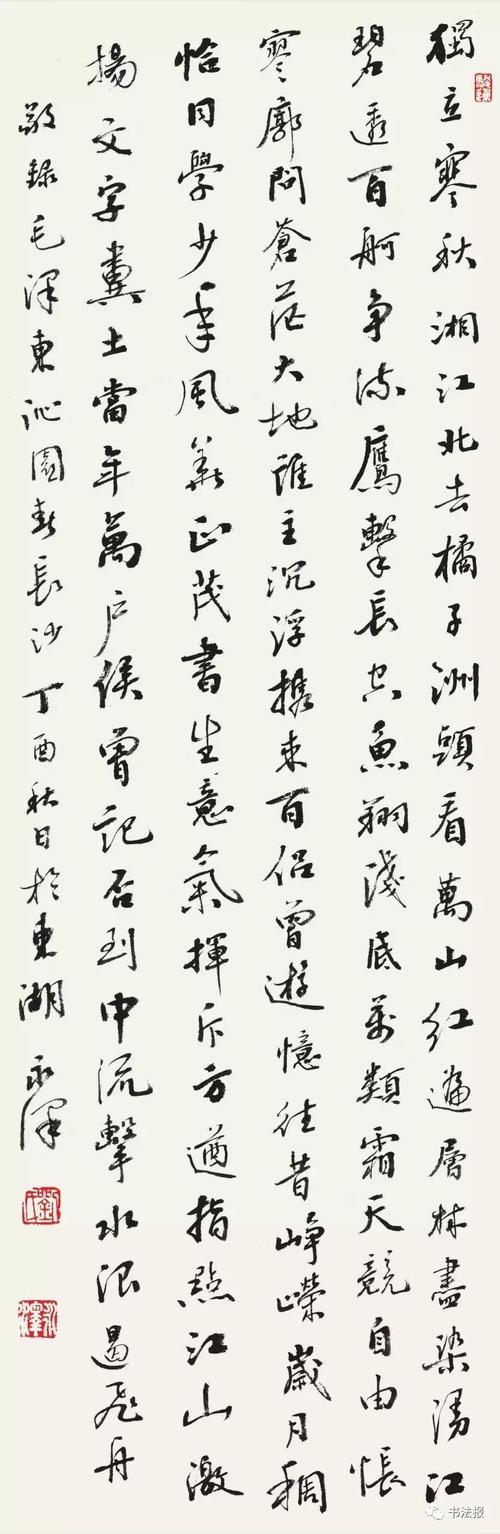 獨立寒秋湘江北去橘子洲頭看萬山紅遍層林盡染漫江
碧透百舸争流鷹擊長空魚翔淺底萬類霜天競自由悵
寥廓問蒼茫大地誰主沉浮攜來百侶曾遊憶往昔崢嶸歲月稠
恰同學少年風華正茂書生意氣揮斥方遒指點江山激
揚文字糞土當年萬户侯曾記否到中流擊水浪遏飛舟
敬録毛澤東沁園春長沙丁酉秋日於東湖 永澤
永澤
书法报